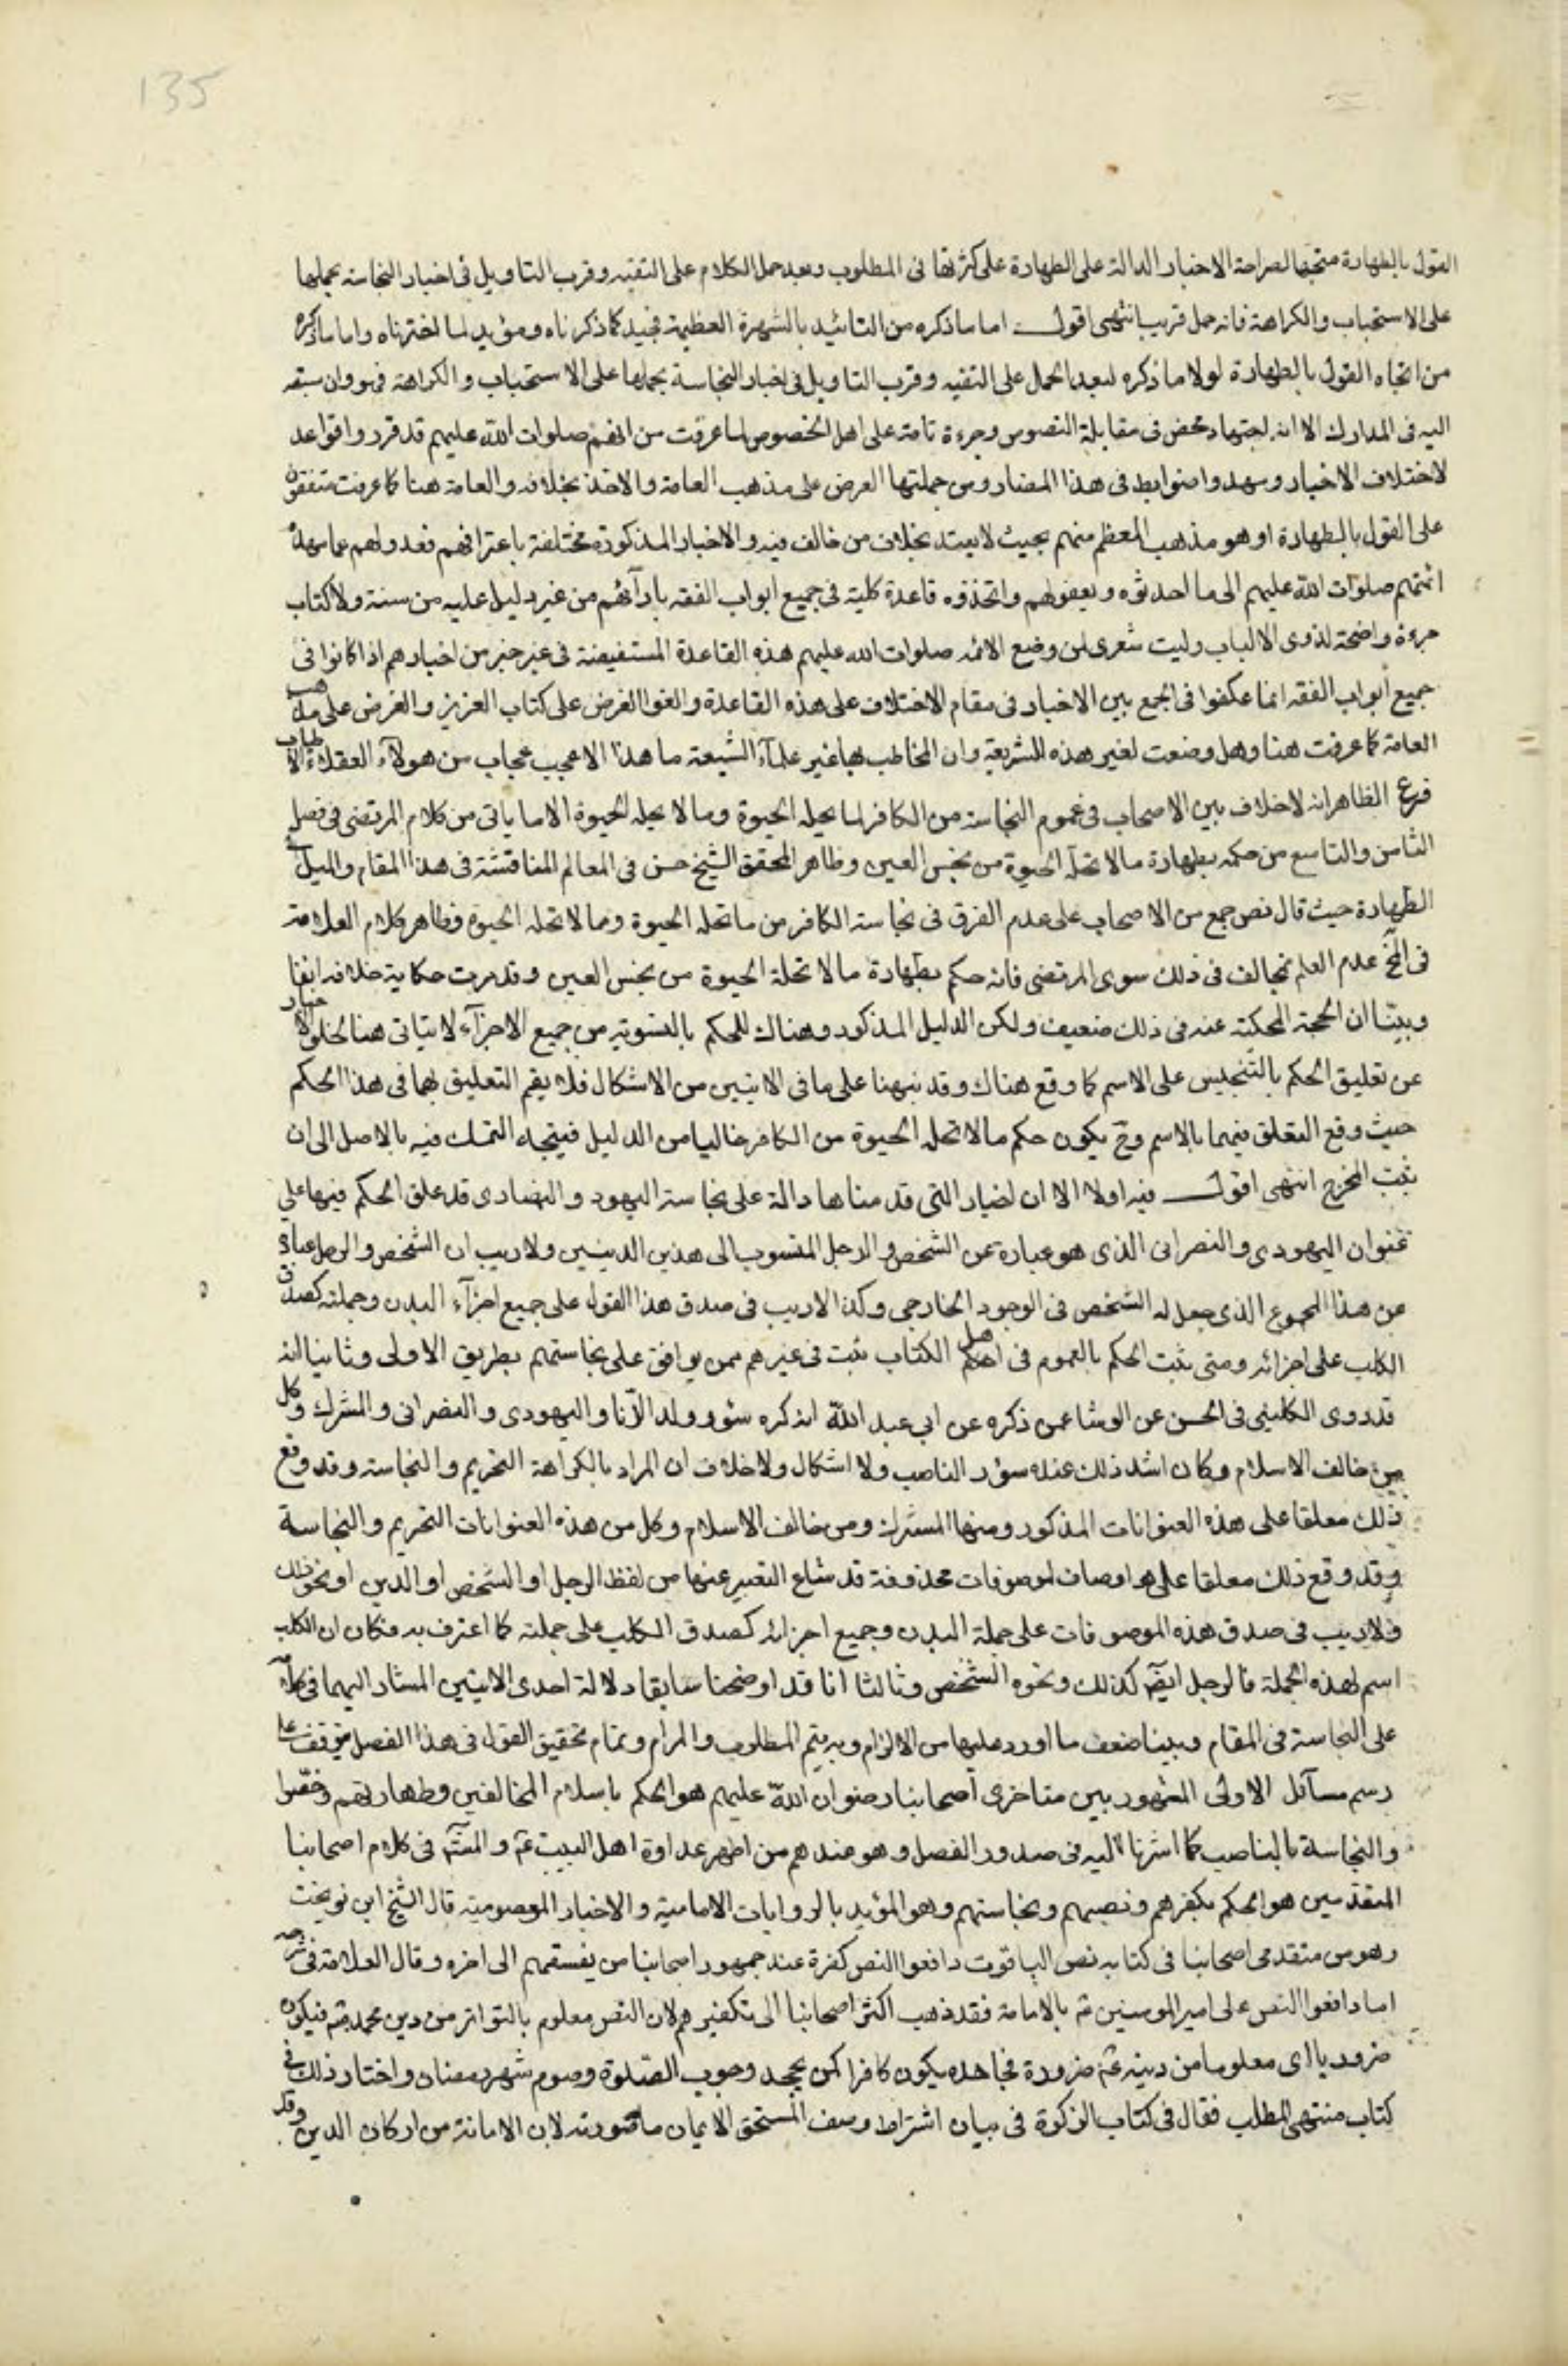 135
القول بالطهارة متجها لصراحة الاخبار الدالة على الطهارة على كثرتها فى المطلوب وبعد حمل الكلام على التقيه وقرب التاويل فى اخبار النجاسة بحملها
على الاستحباب والكراهة فانه حمل قريب انتهى اقول اما ما ذكره من التائيد بالشهرة العظيمة فجيد كما ذكرناه ومؤيد لما اخترناه واما ما ذكره
من اتجاه القول بالطهارة لولا ما ذكره لبعد الحمل على التقيه وقرب التاويل فى اخبار النجاسة بحملها على الاستحباب والكراهة فهو وان سبقه
اليه فى المدارك الا انه اجتهاد محض فى مقابلة النصوص وجرءة تامة على اهل الخصوص لما عرفت من انهم صلوات الله عليهم قد قرروا قواعد
لاختلاف الاخبار ومهدوا ضوابط فى هذا المضمار ومن جملتها العرض على مذهب العامة والاخذ بخلافه والعامة هنا كما عرفت متفقون
على القول بالطهارة او هو مذهب المعظم منهم بحيث لا يعتد بخلاف من خالف فيه والاخبار المذكورة مختلفة باعترافهم فعدولهم عما مهده
ائمتهم صلوات الله عليهم الى ما احدثوه وبعقولهم واتخذوه قاعدة كلية فى جميع ابواب الفقه بارآئهم من غير دليل عليه من سنة ولا كتاب
جرءة واضحة لذوى الالباب وليت شعرى لمن وضع الائمه صلوات الله عليهم هذه القاعدة المستفيضة فى غير خبر من اخبارهم اذا كانوا فى
جميع ابواب الفقه انما عكفوا فى الجمع بين الاخبار فى مقام الاختلاف على هذه القاعدة والغوا العرض على كتاب العزيز والعرض على مذهب
العامة كما عرفت هنا وهل وضعت لغير هذه الشريعة وان المخاطب بها غير علمآء الشيعة ما هذا الا عجب عجاب من هولآء العقلاء الاطياب
فرع الظاهر انه لا خلاف بين الاصحاب فى عموم النجاسة من الكافر لما يحله الحيوة وما لا يحله الحيوة الا ما ياتى من كلام المرتضى فى فصل
الثامن والتاسع من حكمه بطهارة ما لا تحله الحيوة من نجس العين وظاهر المحقق الشيخ حسن فى المعالم المناقشة فى هذا المقام والميل الى
الطهارة حيث قال نص جمع من الاصحاب على عدم الفرق فى نجاسة الكافر من ما تحله الحيوة ومما لا تحله الحيوة وظاهر كلام العلامة
فى المخ عدم العلم بمخالف فى ذلك سوى المرتضى فانه حكم بطهارة ما لا تحلة الحيوة من نجس العين وقد مرت حكاية خلافه انفا
وبيّنا ان الحجة المحكية عنه فى ذلك ضعيف ولكن الدليل المذكور وهناك للحكم بالتسوية من جميع الاجزآء لا يتاتى هنا لخلو الاخبار
عن تعليق الحكم بالتنجيس على الاسم كما وقع هناك وقد نبهنا على ما فى الايتين من الاشكال فلا يقم التعليق بهما فى هذا الحكم
حيث وقع التعلق فيهما بالاسم وح يكون حكم ما لا تحله الحيوة من الكافر خاليا من الدليل فيتجه التمسك فيه بالاصل الى ان
يثبت المخرج انتهى اقول فيه اولا الا ان اخبار التى قدمناها دالة على نجاسة اليهود والنصارى قد علق الحكم فيها على
عنوان اليهودى والنصرانى الذى هو عبارة عن الشخص والرجل المنسوب الى هذين الدينين ولا ريب ان الشخص والرجل عبارة
عن هذا المجموع الذى جعل له الشخص فى الوجود الخارجى وكذا لا ريب فى صدق هذا القول على جميع اجزآء البدن وجملته كصدق
الكلب على اجزائه ومتى ثبت الحكم بالعموم فى اهل الكتاب ثبت فى غيرهم ممن يوافق على نجاستهم بطريق الاولى وثانيا انه
قد روى الكلينى فى الحسن عن الوشا عمن ذكره عن ابى عبد الله انه كره سئور ولد الزنا واليهودى والنصرانى والمشرك وكل
من خالف الاسلام وكان اشد ذلك عنده سؤر الناصب ولا اشكال ولا خلاف ان المراد بالكراهة التحريم والنجاسة وقد وقع
ذلك معلقا على هذه العنوانات المذكور ومنها المشرك ومن خالف الاسلام وكل من هذه العنوانات التحريم والنجاسة
وقد وقع ذلك معلقا على هو اوصاف لموصوفات محذوفة قد شاع التعبير عنها من لفظ الرجل او الشخص او الذين او نحو ذلك
ولا ريب فى صدق هذه الموصوفات على جملة البدن وجميع اجزائه كصدق الكلب على جملته كما اعترف به فكان ان الكلب
اسم لهذه الجملة فالرجل ايضا كذلك ونحوه الشخص وثالثا انا قد اوضحنا سابقا دلالة احدى الايتين المشار اليهما فى كلامه
على النجاسة فى المقام وبينا ضعف ما اورد عليها من الالزام وبه يتم المطلوب والمرام وتمام تحقيق القول فى هذا الفصل يتوقف على
رسم مسآئل الاولى المشهور بين متاخرى اصحابنا رضوان الله عليهم هو الحكم باسلام المخالفين وطهارتهم وخصوا
والنجاسة بالناصب كما اشرنا اليه فى صدور الفصل وهو عندهم من اظهر عداوة اهل البيت ع والمشهور فى كلام اصحابنا
المتقدمين هو الحكم بكفرهم ونصبهم ونجاستهم وهو المؤيد بالروايات الامامية والاخبار المعصومية قال الشيخ ابن نوبخت
وهو من متقدمى اصحابنا فى كتابه نص الياقوت دافعوا النص كفرة عند جمهور اصحابنا من يفسقهم الى اخره وقال العلامة فى شرحه
اما دافعوا النص على امير المومنين ع بالامامة فقد ذهب اكثر اصحابنا الى تكفيرهم لان النص معلوم بالتواتر من دين محمد ص فيكون
ضروريا اى معلوما من دينه ع ضرورة فجاحده يكون كافرا كمن يجحد وجوب الصلوة وصوم شهر رمضان واختار ذلك فى
كتاب منتهى المطلب فقال فى كتاب الزكوة فى بيان اشتراط وصف المستحق الايمان ما صورته لان الامامة من اركان الدين وقد